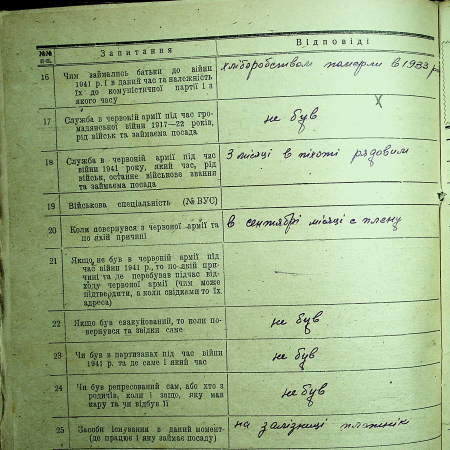 №№ п-п. Запитання Відповіді
16 Чим займались батьки до війни
1941 р. і в даний час та належність
їх до комуністичної партії і з
якого часу
хліборобством померли в 1933 р
17 Служба в червоній армії під час гро-
мадянської війни 1917—22 років,
рід військ та займаєма посада
не був
18 Служба в червоній армії під час
війни 1941 року, який час, рід
військ, останнє військове звання
та займаєма посада
3 місяці в піхоті рядовим
19 Військова спеціальність (№ ВУС)
20 Коли повернувся з червоної армії та
по якій причині
в сентябрі місяці с плену
21 Якщо не був в червоній армії під
час війни 1941 р., то по якій при-
чині та де перебував підчас від-
ходу червоної армії (чим може
підтвердити, а коли свідками то їх
адреса)
—
22 Якщо був евакуйований, то коли по-
вернувся та звідки саме
не був
23 Чи був в партизанах під час війни
1941 р. та де саме і який час
не був
24 Чи був репресований сам, або хто з
родичів, коли і защо, яку мав
кару та чи відбув її
не був
25 Засоби існування в даний момент
(де працює і яку займає посаду)
на залізниці